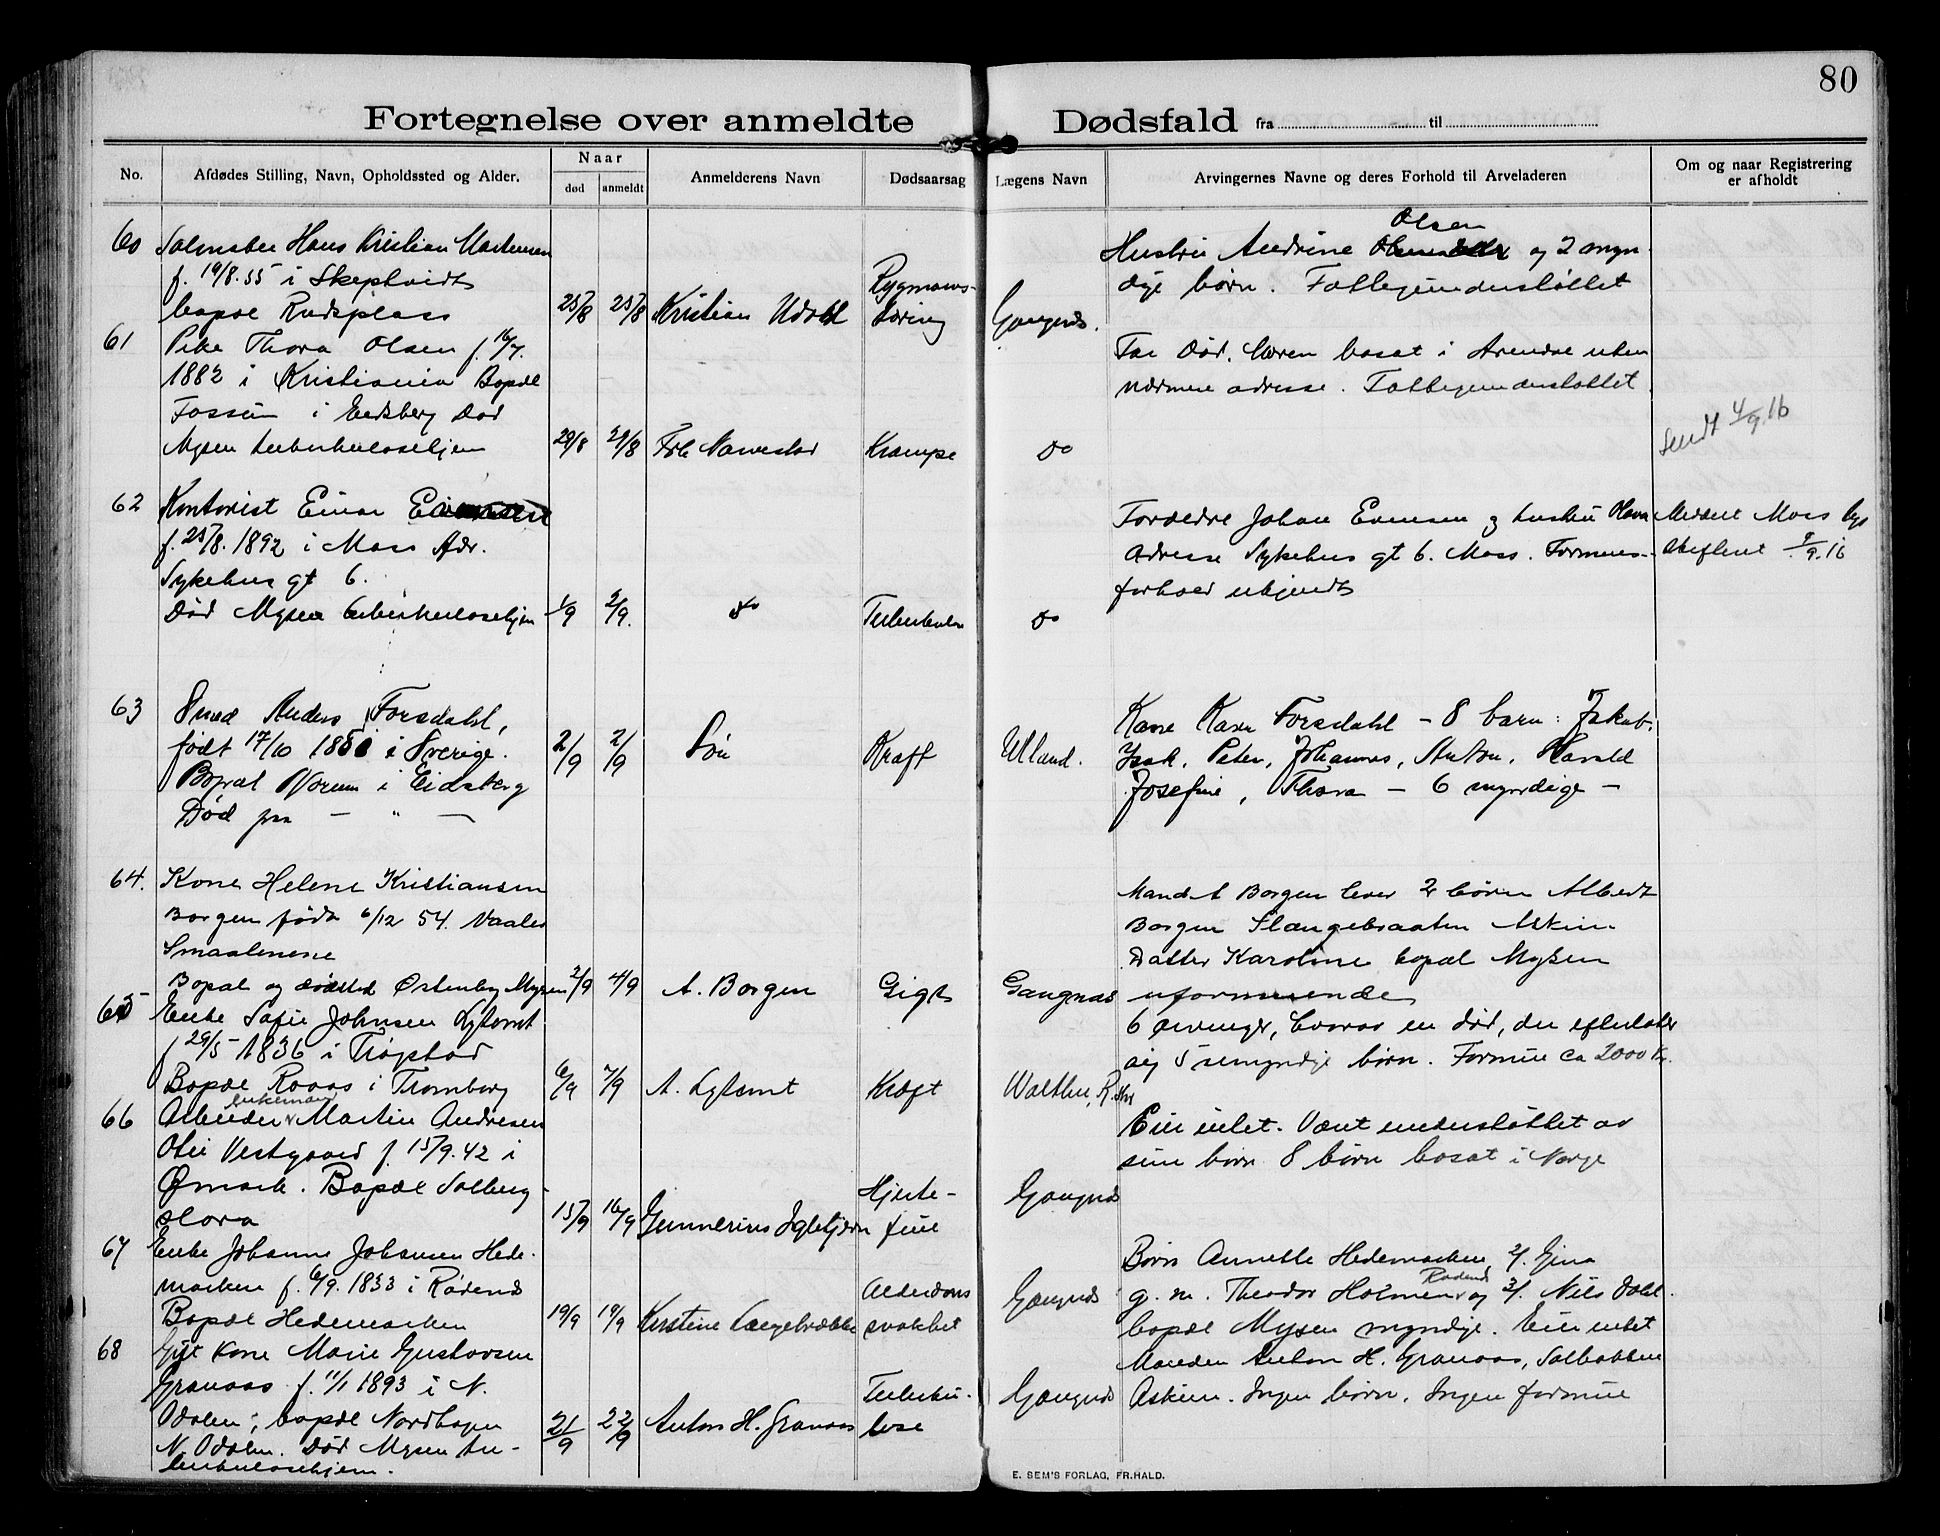 80
Fortegnelse over anmeldte Dødsfald fra til
No.
Afdødes Stilling, Navn, Opholdssted og Alder.
Naar
død
anmeldt
Anmelderens Navn
Dødsaarsag
Lægens Navn
Arvingernes Navne og deres Forhold til Arveladeren
Om og naar Registrering
er afholdt
60
Hans Kristian Martinsen
f. 19/8.55 i Skiptvidt
bopæl Rudsplass
25/8
25/8
Kristian Udahl
Rygmarvs-
tæring
Gangnæs.
Olsen
Hustru Andrine og 2 myn-
dige børn. Fattigunderstøttet
61
Pike Thora Olsen f. 16/7.
1882 i Kristiania Bopæl
Fossum i Eidsberg Død
Mysen tuberkulosehjem
29/8
29/8
Frk Narvestad
Krampe
do
Far død. Moren bosat i Arendal uten
nærmere adresse. Fattigunderstøttet.
Sendt 4/9.16
62
Kontorist Einar Evensen
f. 25/8.1892 i Moss Adr.
Sykehus gt 6.
Død Mysen tuberkulosehjem
1/9
2/9.
do
Tuberkulose
do
Forældre Johan Evensen og hustru
Adresse Sykehus gt 6. Moss. Formues-
forhold ukjendt
Meddelt Moss
skifteret 9/9.16
63
Smed Anders Forsdahl,
født 17/10 i Sverige.
Bopæl Norum i Eidsberg
Død paa — " —
2/9
2/9
Søn
Kræft
Ulland.
Kone Karn Forsdahl – 8 barn: Jakob,
Isak, Peter, Johannes, Anton, Harald
Josefine, Thora – 6 myndige –
64.
Kone Helene Kristiansen
Borgen født 6/12 54. Vaaler
Smaalenene
Bopæl og dødsted Østenby Mysen
2/9
4/9
A. Borgen
Gigt
Gangnæs
Mand A Borgen lever 2 børn Albert
Borgen Slangebraaten Askim.
Datter Karoline bopæl Mysen
uformuende
65
Enke Sofie Johnsen Lytomt
f 29/5 1836 i Trøgstad
Bopæl Raaas i Trømborg
6/9
7/9
A. Lytomt
Kræft
Walther, R.
6 arvinger, hvorav en død, der efterlater
sig 5 umyndige børn. Formue ca 2000 Kr.
66
Arbeider enkemand Martin Andresen
Otei Vestgaard f. 15/9.42 i
Ømark. Bopæl Solberg
Hova
15/9
16/9
Gunnerius Igletjern
Hjerte-
feil
Gangnæs
Eier intet. Vært understøttet av
sine børn 8 børn bosat i Norge
67
Enke Johanne Johansen Hede-
marken f. 6/9.1833 i Rødenæs
Bopæl Hedemarken
19/9
19/9
Kirstine Langebrække
Alderdoms
svakhet
Gangnæs
Børn Annette Hedemarken, 2/. Gina
g. m. Theodor Holmen Rødenæs og 3/. Nils Dahl.
bopæl Mysen myndige. Eier intet
68
Gift Kone Marie Gustavsen
Granaas f. 11/1 1893 i N.
Odalen; bopæl Nordhagen
N. Odalen. Død Mysen tu-
berkulosehjem.
21/9
22/9
Anton H. Granaas
Tuberku-
lose
Gangnæs
Manden Anton H. Granaas, Solbakken
Askim. Ingen børn. Ingen formue
E. SEM'S FORLAG, FR.HALD.